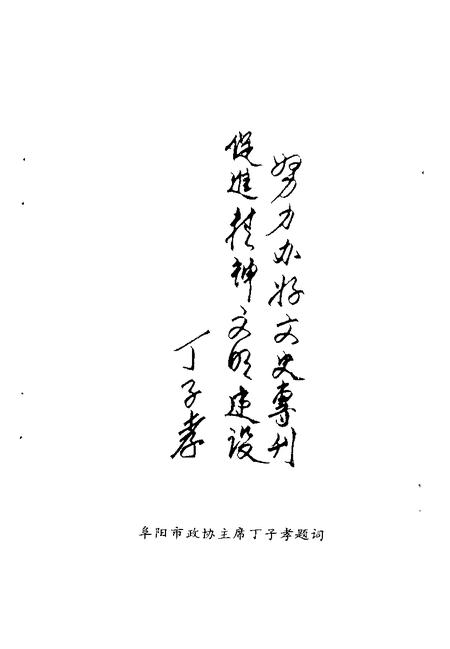 努力办好文史專刊
促進精神文明建设
丁子孝
阜阳市政协主席丁子孝题词